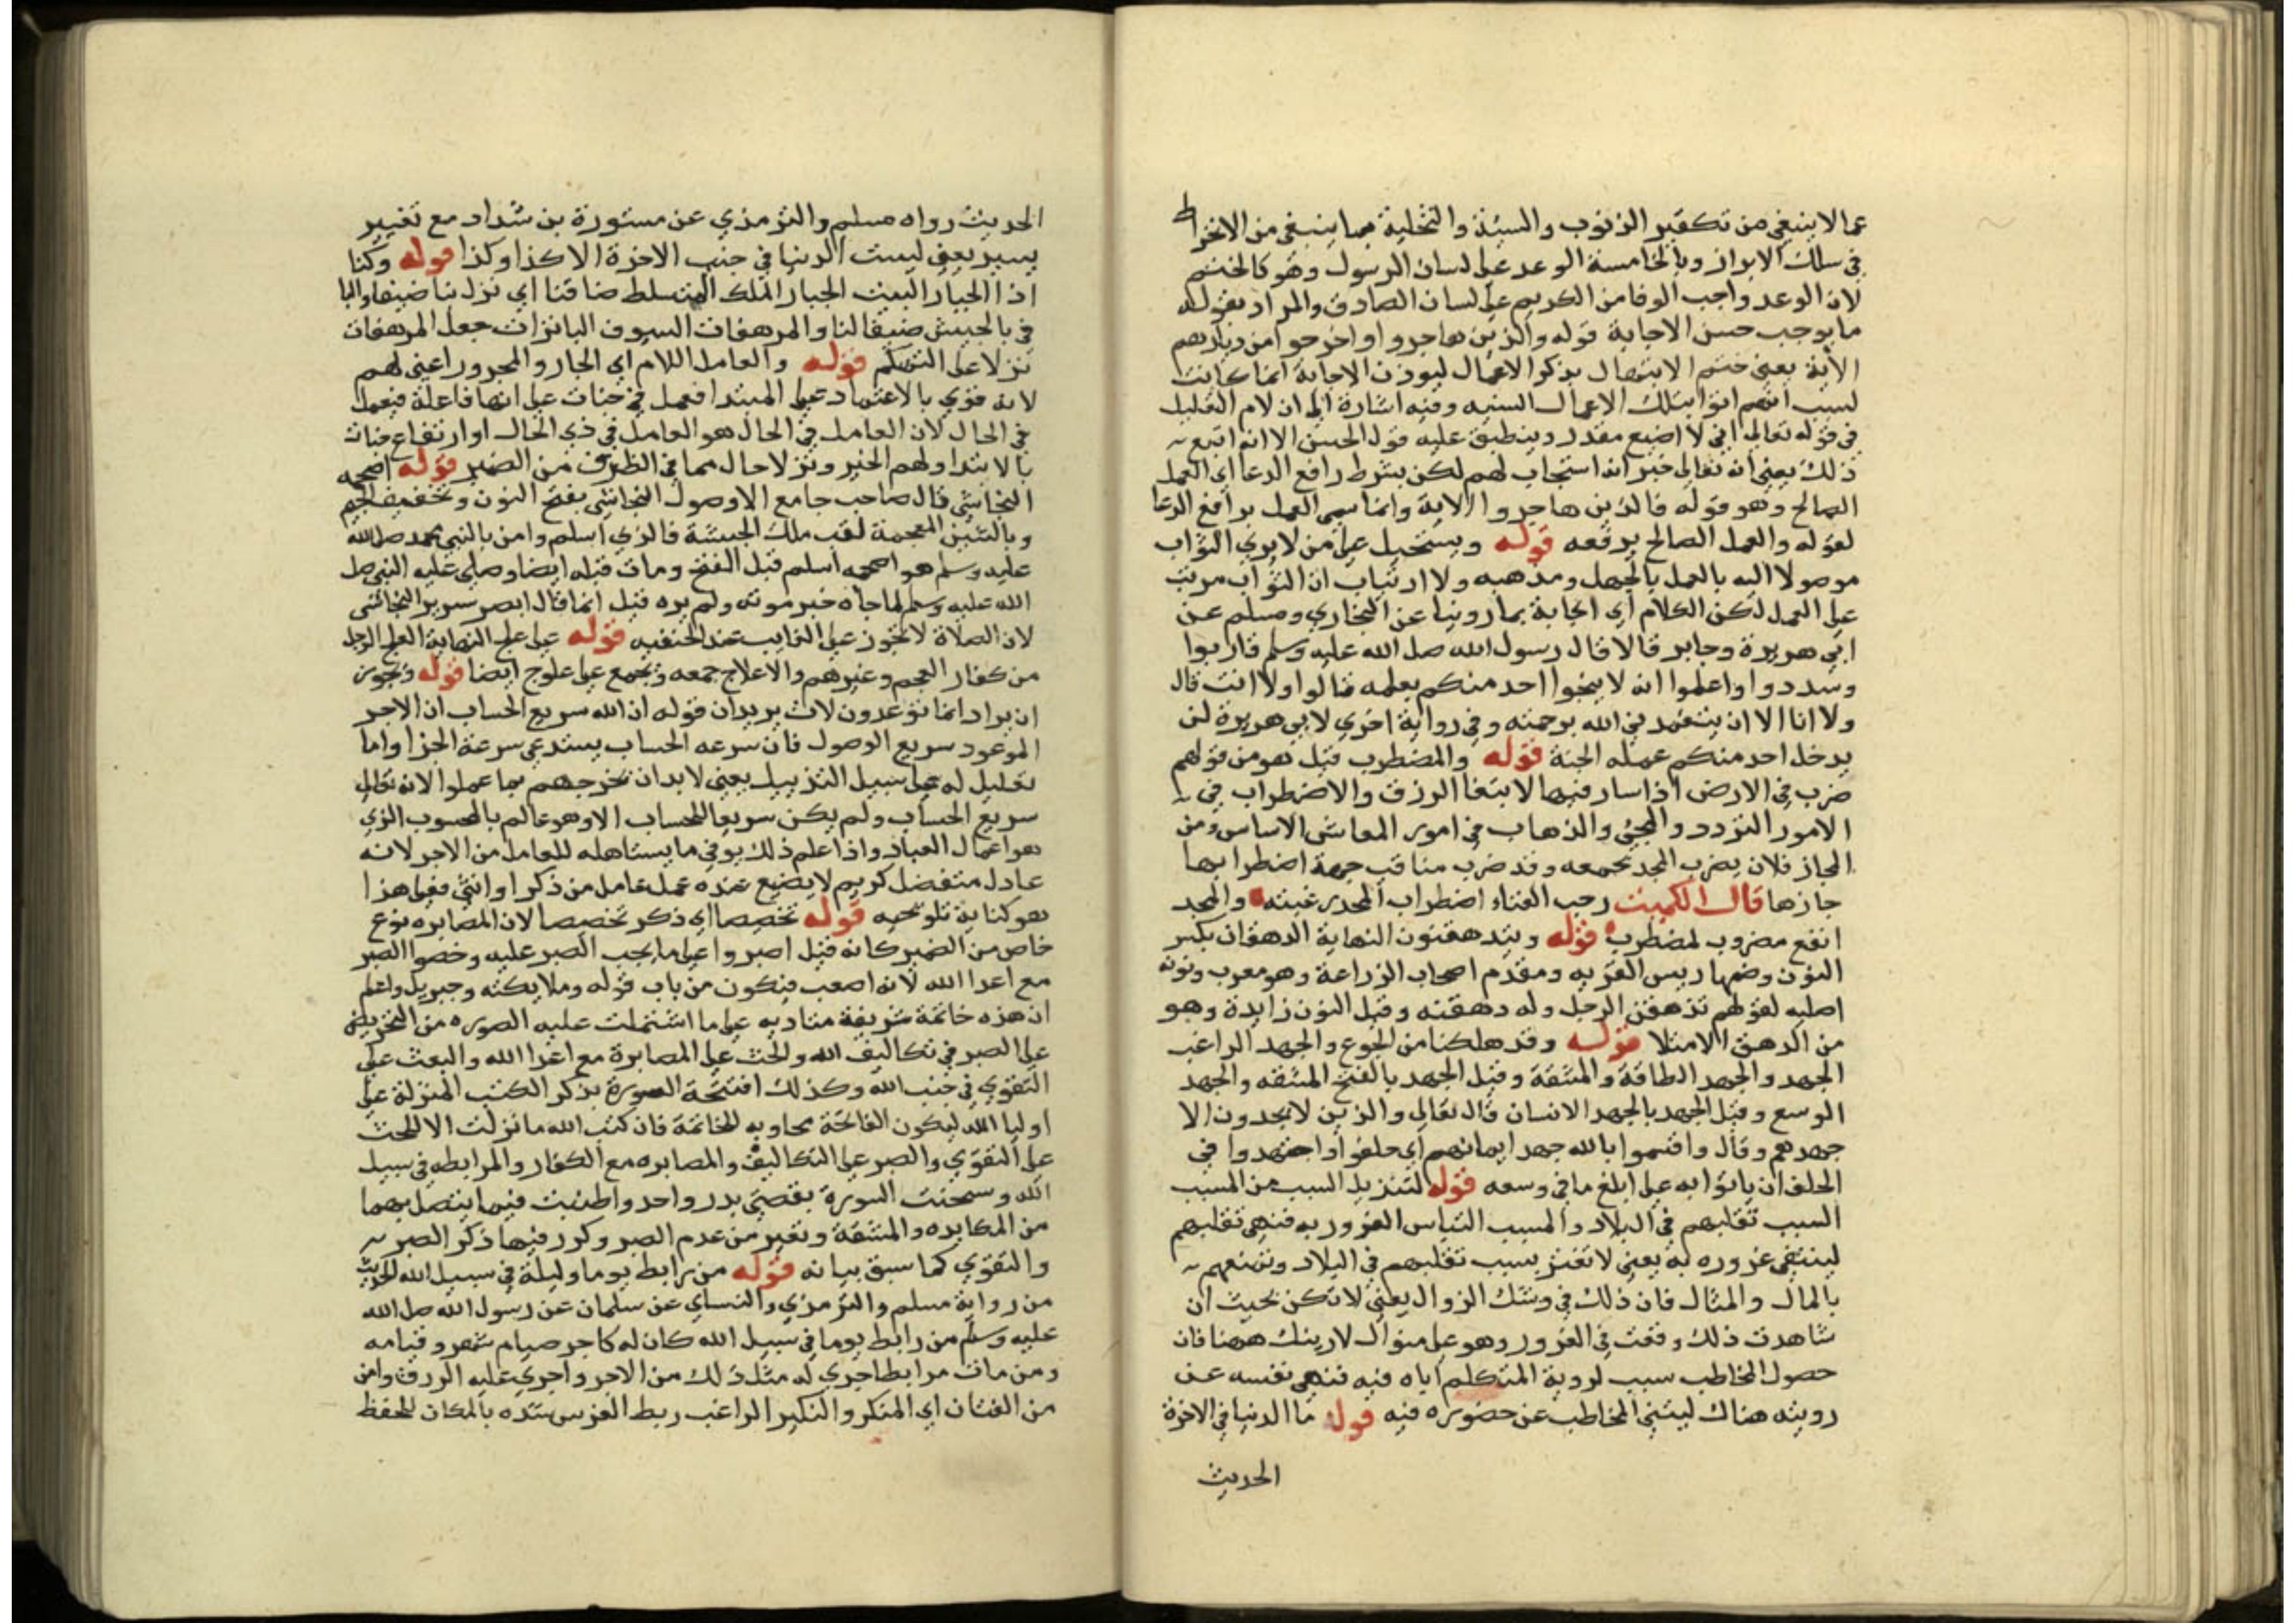 عما لا ينبغي من تكفير الذنوب والسيئة والتحلية بما ينبغي من الانخراط
في سلك الابرار وبالخامسة الوعد على لسان الرسول وهو كالختم
لان الوعد واجب الوفا من الكريم على لسان الصادق والمراد بقوله
ما يوجب حسن الاجابة قوله والذين هاجروا واخرجوا من ديارهم
الآية يعني ختم الابتهال بذكر الاعمال ليوذن الاجابة انما كانت
لسبب انهم اتوا بتلك الاعمال السنيه وفيه اشارة الى ان لام التعليل
في قوله تعالى اني لا اضيع مقدر وينطبق عليه قول الحسن الا انه اتبع
ذلك يعني انه تعالى خبر انه استجاب لهم لكن بشرط رافع الدعا اي العمل
الصالح وهو قوله فالذين هاجروا الاية وانما سمى العمل برافع الدعا
لقوله والعمل الصالح يرفعه قوله ويستحيل على من لا يرى الثواب
موصولا اليه بالعمل بالجهل ومذهبه ولا ارتياب ان الثواب مرتب
على العمل لكن الكلام اي ايجابة بما روينا عن البخاري ومسلم عن
ابي هريرة وجابر قالا قال رسول الله صلى الله عليه وسلم قاربوا
وسددوا واعلموا انه لا ينجوا احد منكم بعلمه قالوا ولا انت قال
ولا انا الا ان يتغمدني الله برحمته وفي رواية اخرى لابي هريرة لن
يدخل احد منكم عمله الجنة قوله والمضطرب قيل هو من قولهم
ضرب في الارض اذا سار فيها لابتغا الرزق والاضطراب في
الامور التردد والمجئ والذهاب في امور المعاش الاساس ومن
المجاز فلان يضرب المجد بجمعه وقد ضرب مناقب جمة اضطرابها
حازها قال الكميت رحب الفناء اضطراب المجد رغبته والمجد
انفع مضروب لمضطرب قوله ويتدهقنون النهاية الدهقان بكسر
النون وضمها ريس القريه ومقدم اصحاب الزراعة وهو معرب ونونه
اصليه لقولهم تدهقن الرجل وله دهقنه وقيل النون زايدة وهو
من الدهق الامتلا قوله وقد هلكنا من الجوع والجهد الراغب
الجهد والجهد الطاقة والمشقة وقيل الجهد بالفتح المشقه والجهد
الوسع وقيل الجهد بالجهد الانسان قال تعالى والذين لا يجدون الا
جهدهم وقال واقسموا بالله جهد ايمانهم اي حلفوا واجتهدوا في
الحلف ان ياتوا به على ابلغ ما في وسعه قوله لتنزيل السبب من المسبب
السبب تقلبهم في البلاد والمسبب التباس الغرور به فنهى تقلبهم
لينتفي غروره به يعني لا تغتر بسبب تقلبهم في البلاد وتمتعهم
بالمال والمثال فان ذلك في وشك الزوال يعني لا تكن بحيث ان
شاهدت ذلك وقعت في الغرور وهو على منوال لا رينك ههنا فان
حصول المخاطب سبب لروية المتكلم اياه فيه فنهى نفسه عن
رويته هناك لينتهي المخاطب عن حضوره فيه قوله ما الدنيا في الاخرة
الحديث
الحديث رواه مسلم والترمذي عن مستورة بن شداد مع تغيير
يسير يعني ليست الدنيا في جنب الاخرة الا كذا وكذا قوله وكنا
اذا الجبار البيت الجبار الملك المتسلط ضافنا اي نزل بنا ضيفا والبا
في بالجيش ضيفا لنا والمرهفات السيوف الباترات جعل المرهفات
نزلا على التهكم قوله والعامل اللام اي الجار والمجرور اعني لهم
لانه قوي بالاعتماد على المبتدا فعمل في جنات على انها فاعلة فيعمل
في الحال لان العامل في الحال هو العامل في ذي الحال او ارتفاع جنات
بالابتدا ولهم الخبر ونزلا حال مما في الظرف من الضمير قوله اصحمه
النجاشي قال صاحب جامع الاوصول النجاشي بفتح النون وتخفيف الجيم
وبالشين المعجمة لقب ملك الحبشة فالذي اسلم وامن بالنبي محمد صلى الله
عليه وسلم هو اصحمه اسلم قبل الفتح ومات قبله ايضا وصلى عليه النبي صلى
الله عليه وسلم لما جاه خبر موته ولم يره قيل انما قال ابصر سرير النجاشي
لان الصلاة لا تجوز على الغايب عند الحنفيه قوله على علج النهاية العلج الرجل
من كفار العجم وغيرهم والاعلاج جمعه ويجمع على علوج ايضا قوله ويجوز
ان يراد انما توعدون لات يريد ان قوله ان الله سريع الحساب ان الاجر
الموعود سريع الوصول فان سرعه الحساب يستدعي سرعة الجزا واما
تعليل له على سبيل التذييل يعني لا بد ان يخرجهم بما عملوا لانه تعالى
سريع الحساب ولم يكن سريعا للحساب الا وهو عالم بالمحسوب الذي
هو اعمال العباد واذا علم ذلك يوفي ما يستاهله للعامل من الاجر لانه
عادل متفضل كريم لا يضيع عنده عمل عامل من ذكر او انثى فعلى هذا
هو كناية تلويحيه قوله تخصيصا اي ذكر تخصيصا لان المصابره نوع
خاص من الضمير كانه قيل اصبروا على ما يجب الصبر عليه وخصوا الصبر
مع اعدا الله لانه اصعب فيكون من باب قوله وملايكته وجبريل واعلم
ان هذه خاتمة شريفة مناديه على ما اشتملت عليه الصوره من التحريض
على الصبر في تكاليف الله والحث على المصابرة مع اعدا الله والبعث على
التقوي في جنب الله وكذلك افتتحة الصورة بذكر الكتب المنزلة على
اوليا الله ليكون الفاتحة مجاوبه للخاتمة فان كتب الله ما نزلت الا للحث
على التقوي والصبر على التكاليف والمصابره مع الكفار والمرابطه في سبيل
الله وسمحنت السورة بقصتي بدر واحد واطنبت فيما يتصل بهما
من المكايده والمشقة وتغير من عدم الصبر وكرر فيها ذكر الصبر
والتقوي كما سبق بيانه قوله من رابط يوما وليلة في سبيل الله الحديث
من رواية مسلم والترمذي والنساي عن سلمان عن رسول الله صلى الله
عليه وسلم من رابط يوما في سبيل الله كان له كاجر صيام شهر وقيامه
ومن مات مرابطا جري له مثل ذلك من الاجر واجري عليه الرزق وامن
من الفتان اي المنكر والنكير الراغب ربط الفرس شده بالمكان للحفظ